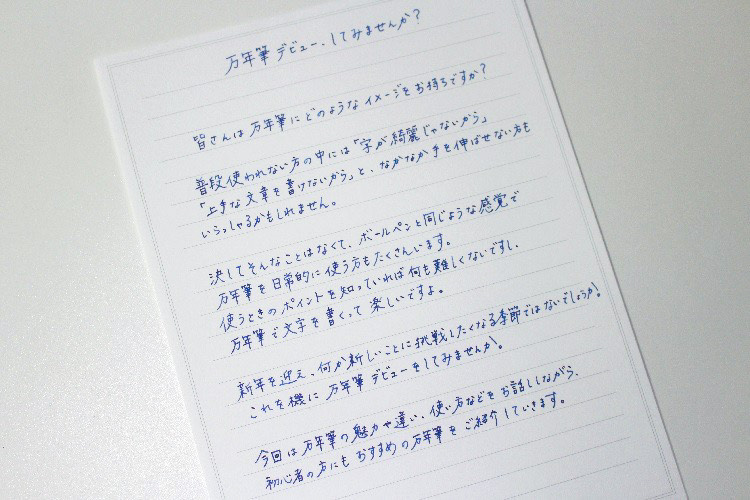 万年筆デビュー、してみませんか？
皆さんは万年筆にどのようなイメージをお持ちですか？
普段使われない方の中には「字が綺麗じゃないから」
「上手な文章を書けないから」と、なかなか手を伸ばせない方も
いらっしゃるかもしれません。
決してそんなことはなくて、ボールペンと同じような感覚で
万年筆を日常的に使う方もたくさんいます。
使うときのポイントを知っていれば何も難しくないですし、
万年筆で文字を書くって楽しいですよ。
新年を迎え、何か新しいことに挑戦したくなる季節ではないでしょうか。
これを機に万年筆デビューをしてみませんか。
今回は万年筆の魅力や違い、使い方などをお話ししながら、
初心者の方にもおすすめの万年筆をご紹介していきます。